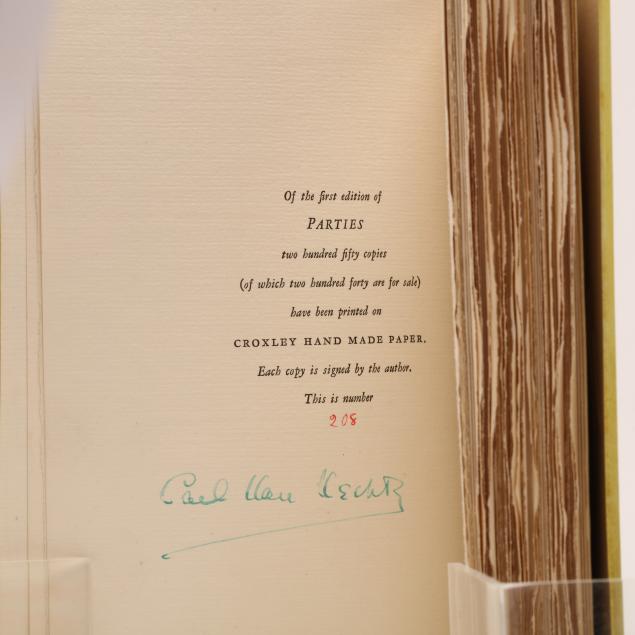 Of the first edition of
PARTIES
two hundred fifty copies
(of which two hundred forty are for sale)
have been printed on
CROXLEY HAND MADE PAPER.
Each copy is signed by the author.
This is number
208
Carl Van Vechten